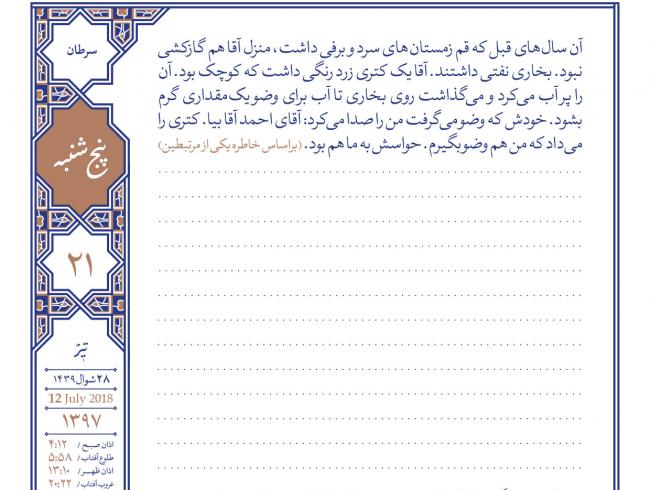 سرطان
پنج شنبه
۲۱
تیر
۲۸ شوال ۱۴۳۹
12 July 2018
۱۳۹۷
اذان صبح / ۴:۱۲
طلوع آفتاب / ۵:۵۸
اذان ظهر / ۱۳:۱۰
غروب آفتاب / ۲۰:۲۲
آن سال‌های قبل که قم زمستان‌های سرد و برفی داشت، منزل آقا هم گازکشی
نبود. بخاری نفتی داشتند. آقا یک کتری زرد رنگی داشت که کوچک بود. آن
را پر آب می‌کرد و می‌گذاشت روی بخاری تا آب برای وضو یک مقداری گرم
بشود. خودش که وضو می‌گرفت من را صدا می‌کرد: آقای احمد آقا بیا. کتری را
می‌داد که من هم وضو بگیرم. حواسش به ما هم بود. (براساس خاطره یکی از مرتبطین)